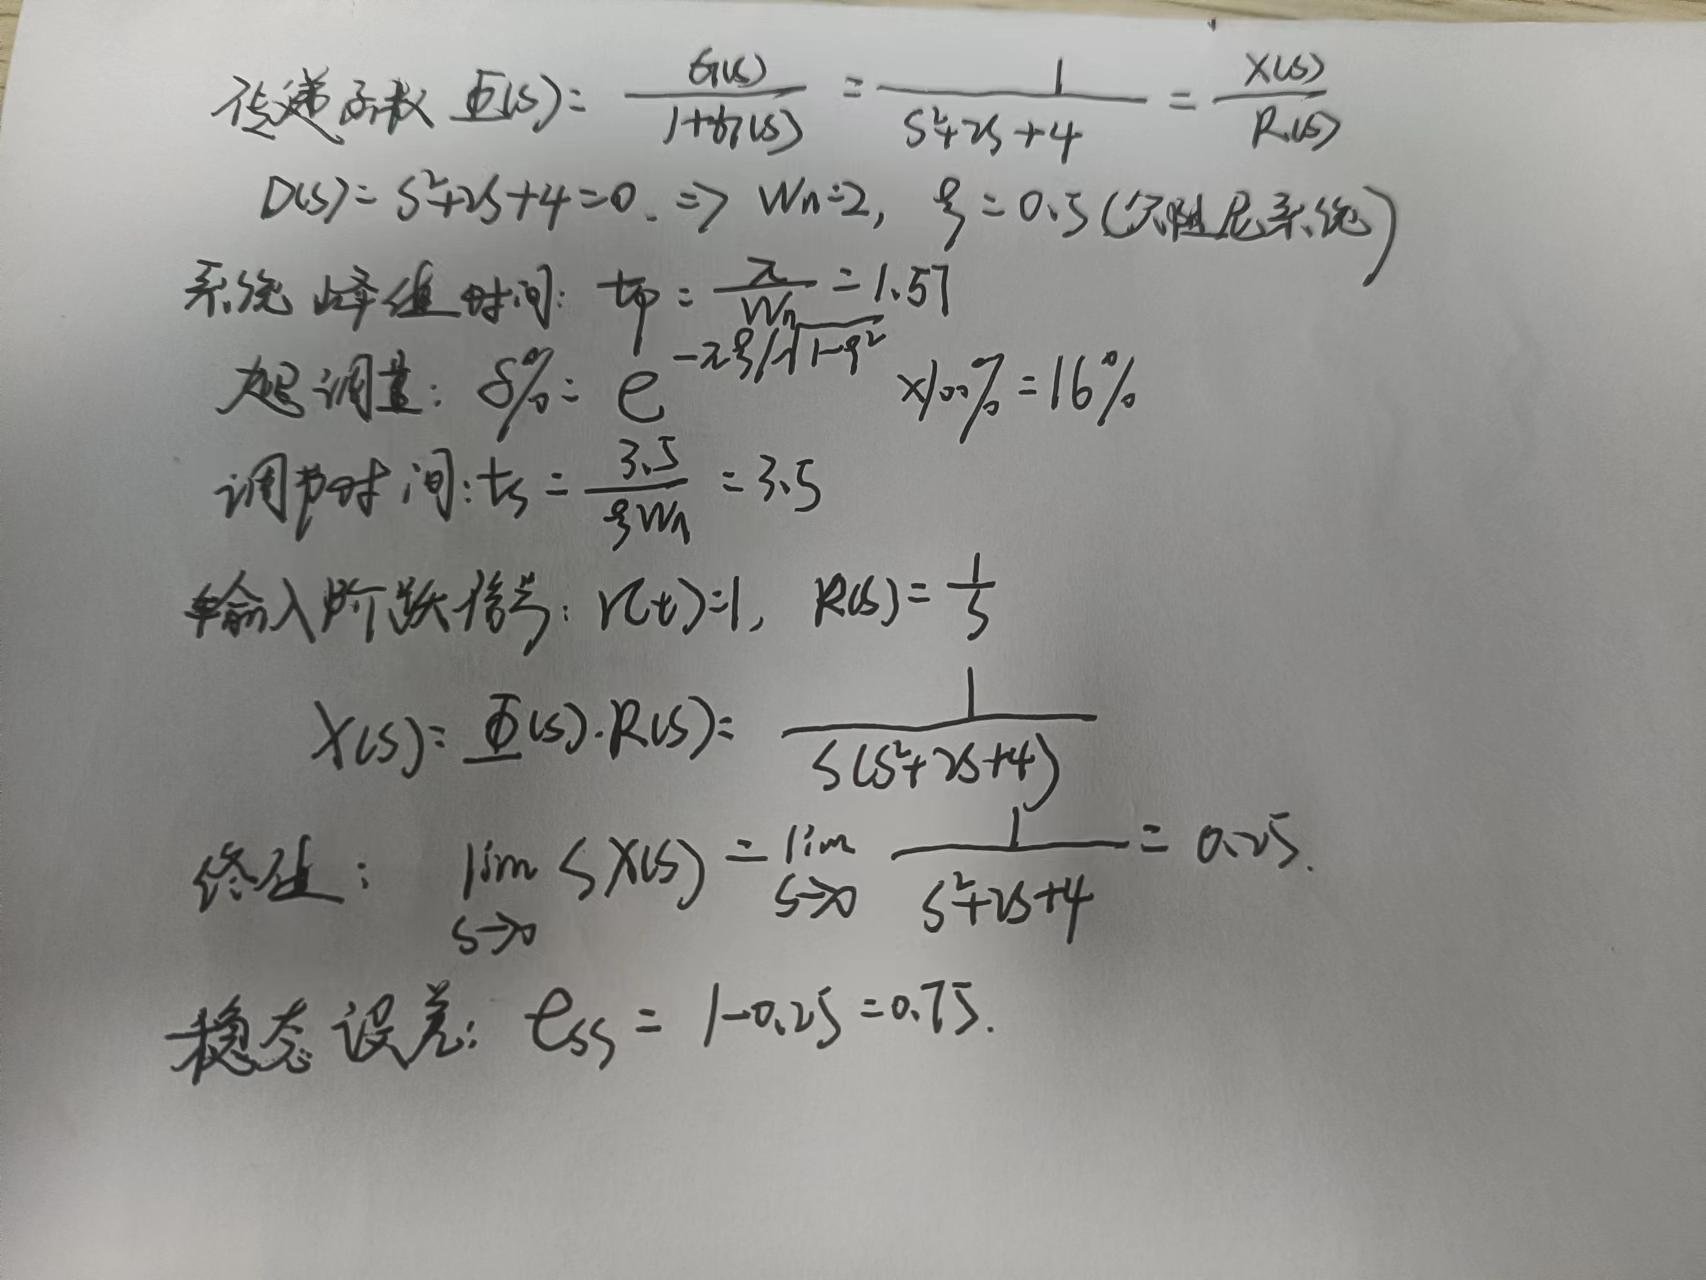 传递函数 Φ(s) = G(s)/(1+G(s)) = 1/(s²+2s+4) = X(s)/R(s)
D(s) = s²+2s+4=0. => Wn=2, ξ=0.5(欠阻尼系统)
系统峰值时间: tp = π/Wn = 1.57
超调量: δ% = e^(-πξ/√(1-ξ²)) ×100% = 16%
调节时间: ts = 3.5/(ξWn) = 3.5
输入阶跃信号: r(t)=1, R(s) = 1/s
X(s) = Φ(s)·R(s) = 1/(s(s²+2s+4))
终值: lim s→0 sX(s) = lim s→0 1/(s²+2s+4) = 0.25.
稳态误差: ess = 1-0.25 = 0.75.